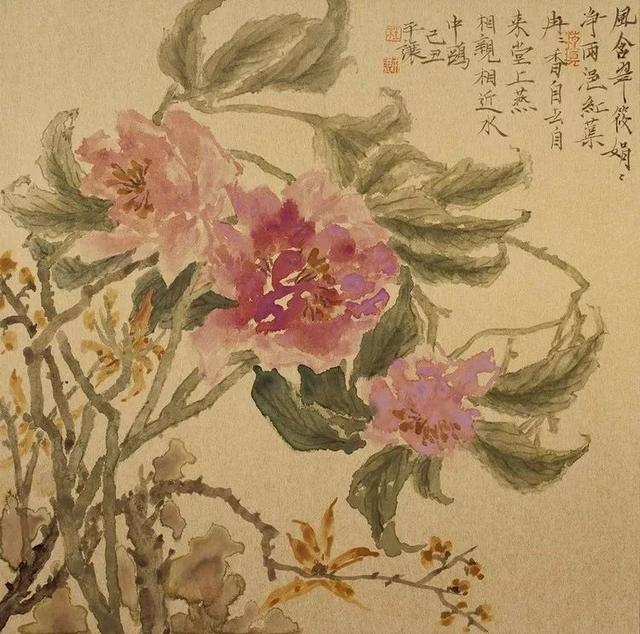 風含翠筱娟〻
净雨浥紅蕖
冉〻香自去自
来堂上燕
相親相近水
中鷗
己丑